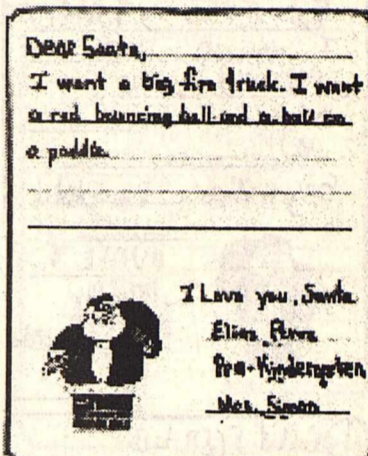 Dear Santa,
I want a big fire truck. I want
a red bouncing ball and a ball on
a paddle.
I Love you, Santa
Elias
Pre-Kindergarten
Mrs. Simon